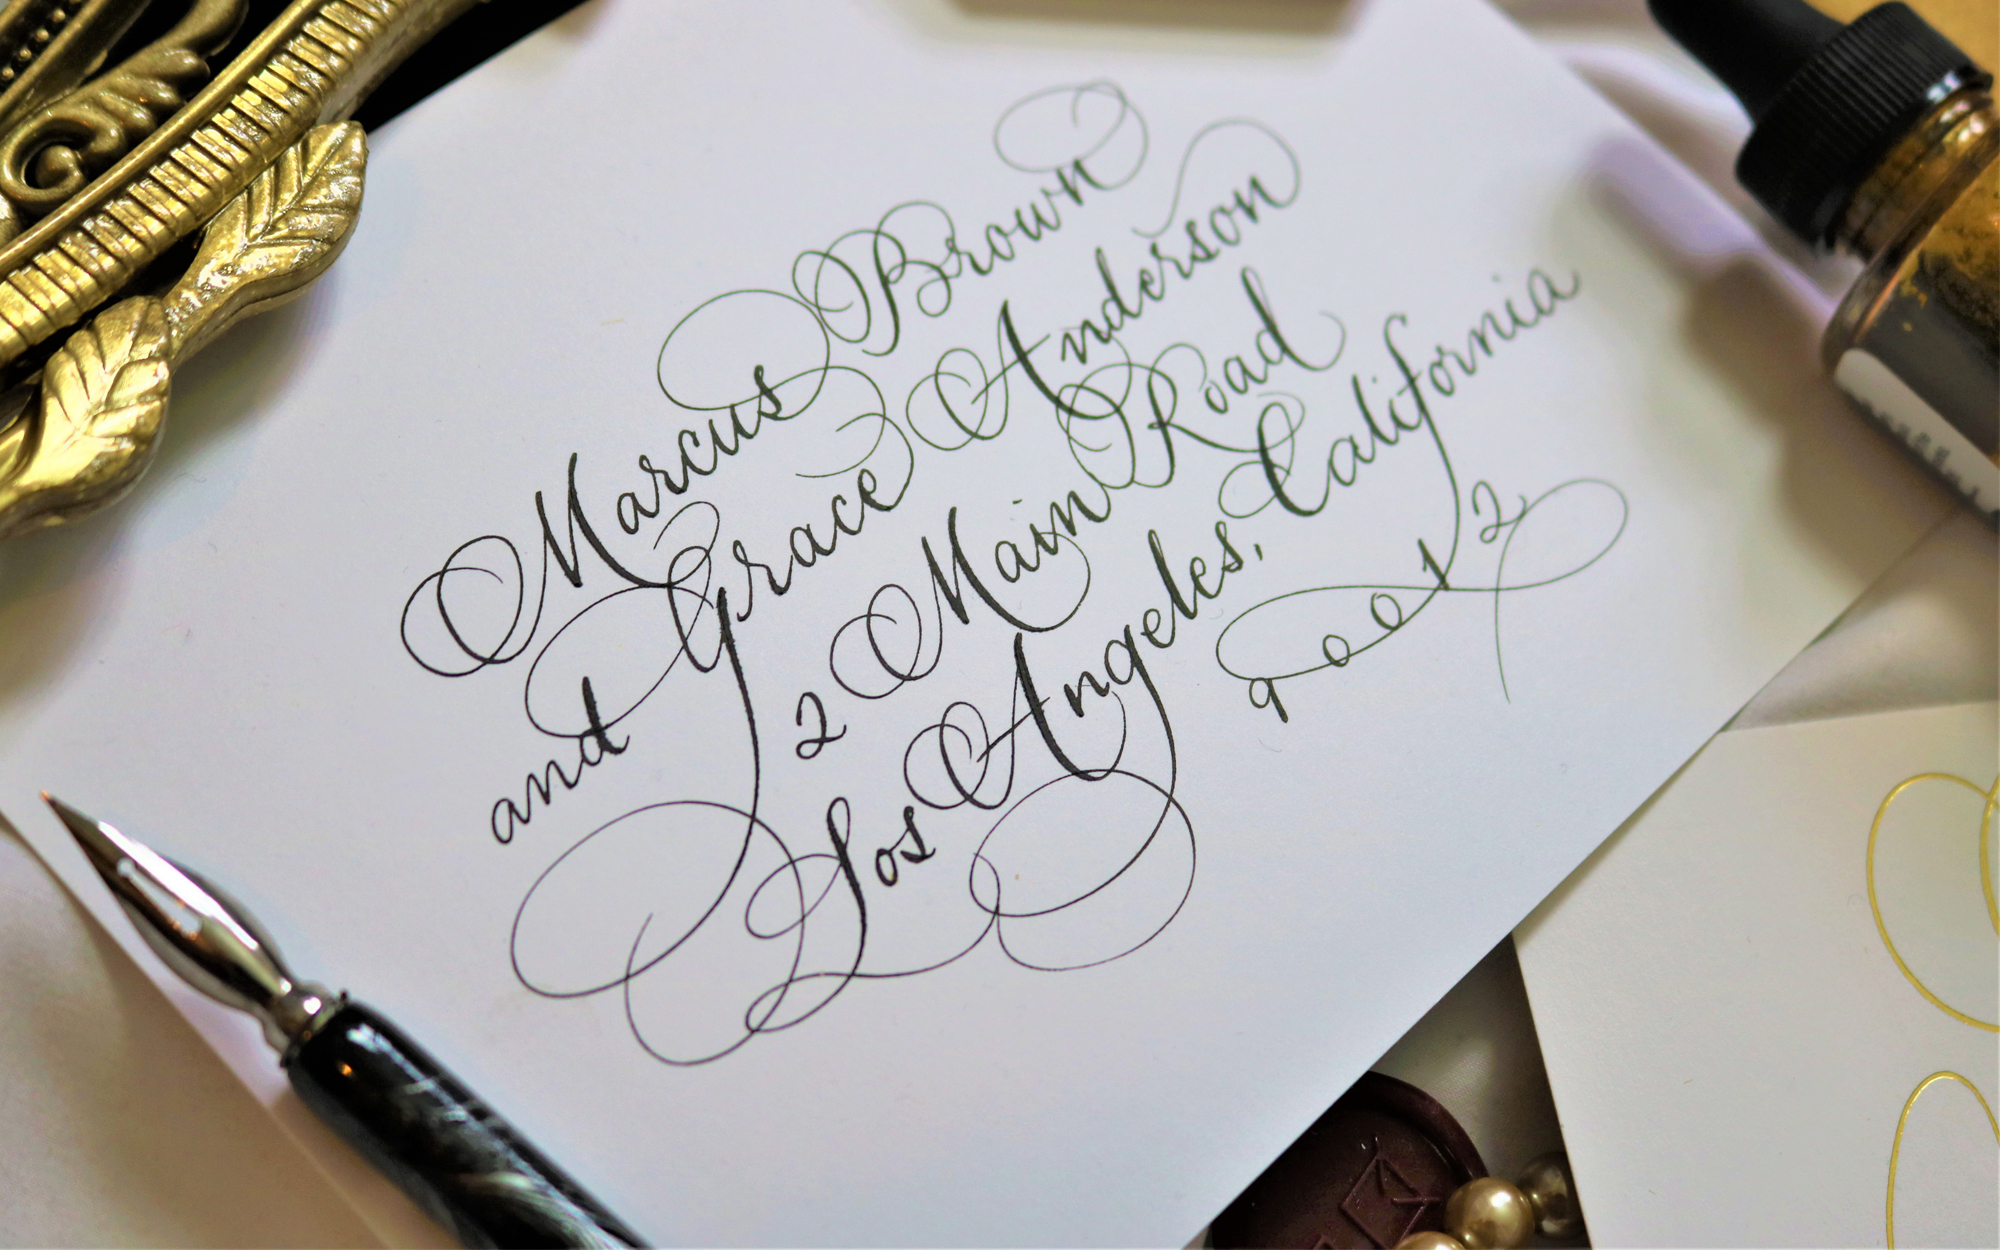 Marcus Brown
and Grace Anderson
2 Main Road
Los Angeles, California
90012